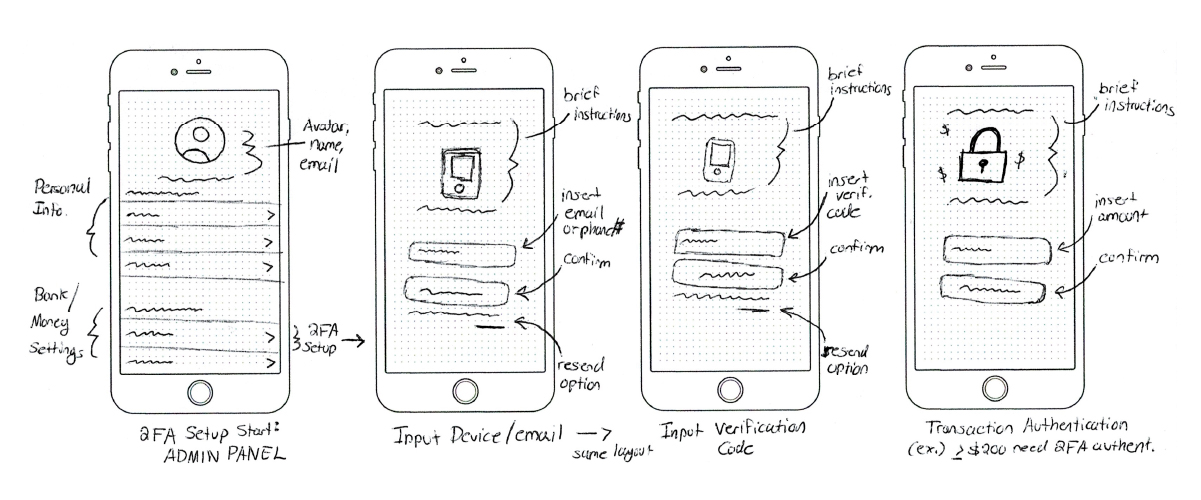 Personal
Info.
Bank/
Money
Settings
Avatar,
name,
email
2FA
Setup
2FA Setup Start:
ADMIN PANEL
brief
instructions
insert
email
or phone#
confirm
resend
option
Input Device/email →
same layout
brief
instructions
insert
verif.
code
confirm
resend
option
Input Verification
Code
$
$
$
brief
instructions
insert
amount
confirm
Transaction Authentication
(ex.) ≥ $200 need 2FA authent.